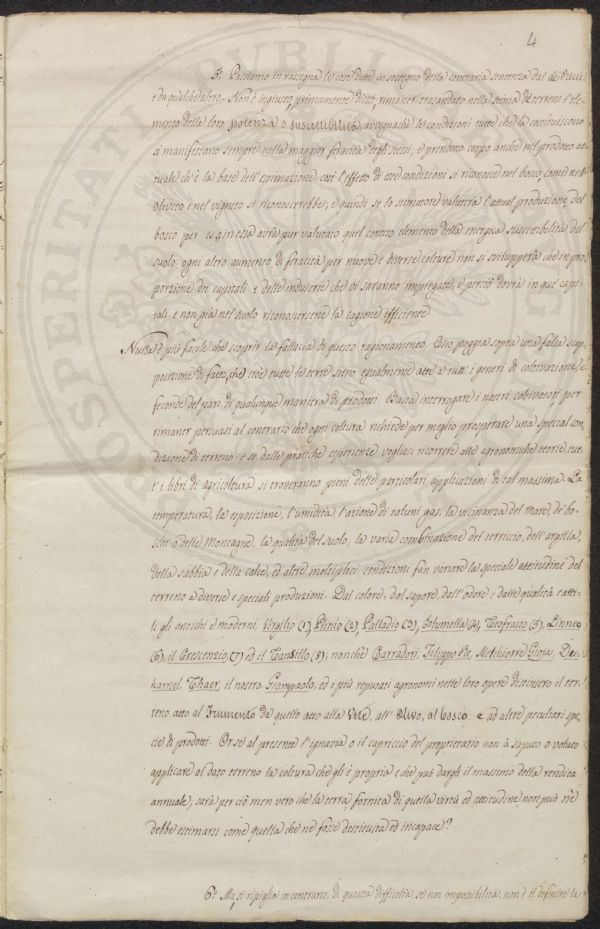 4
5.° Passiamo in rassegna le cose dette in sostegno della contraria sentenza dal
e da qualchedaltro. Non è ingiusto, primamente dicesi, rimaner trasandato nella stima de' terreni l'ele-
mento della loro potenza o suscettibilità, avvegnachè le condizioni tutte che la costituiscono
si manifestano sempre nella maggior feracità degli stessi, e prendono corpo anche nel prodotto at-
tuale ch'è la base dell'estimazione: così l'effetto di esse condizioni si riconosce nel bosco, come nell'
oliveto e nel vigneto si riconoscerebbe; e quindi se lo stimatore valuterà l'attual produzione del
bosco per es. in essa avrà pur valutato quel cotesto elemento della energica suscettibilità del
suolo: ogni altro aumento di feracità per nuove e diverse colture non si svilupperà che in pro-
porzione dei capitali e delle industrie che vi saranno impiegate, e perciò dovrà in que' capi-
tali e non già nel suolo riconoscersene la cagione efficiente
Nulla è più facile che scoprir la fallacia di questo ragionamento. Esso poggia sopra una falsa sup-
posizione di fatto, che cioè tutte le terre sieno egualmente atte a tutt'i generi di coltivazione, e
feconde del pari di qualunque maniera di prodotti. Basta interrogare i nostri coltivatori per
rimaner persuasi al contrario che ogni coltura richiede per meglio prosperare una special con-
dizione di terreno: e se dalle pratiche esperienze vogliasi ricorrere alle agronomiche teorie, tut-
t'i libri di agricoltura si troveranno pieni delle particolari applicazioni di tal massima. La
temperatura, la esposizione, l'umidità l'azione di taluni gas, la vicinanza del mare, de' bo-
schi o delle montagne, la qualità del suolo, la varia combinazione del terriccio, dell'argilla,
della sabbia e della calce, ed altre moltiplici condizioni fan variare la speciale attitudine del
terreno a diverse e speciali produzioni. Dal colore, dal sapore, dall'odore e dalle qualità tatti-
li gli antichi e moderni, Virgilio (1), Plinio (2), Palladio (3), Columella (4), Teofrasto (5), Linneo
(6), il Crescenzio (7) ed il Tansillo (8); nonchè Barradori, Filippo Re, Melchiorre Gioja, Du-
hamel, Thaer, il nostro Giampaolo, ed i più reputati agronomi nelle loro opere distinsero il ter-
reno atto al Frumento da quello atto alla Vite, all'Olivo, al bosco e ad altre peculiari spe-
cie di prodotti. Or se al presente l'ignavia o il capriccio del proprietario non à saputo o voluto
applicare al dato terreno la coltura che gli è propria e che può dargli il massimo della rendita
annuale; sarà per ciò men vero che la terra, fornita di quella virtù ed attitudine non può nè
debbe estimarsi come quella che ne fosse destituita ed incapace?
6.° Ma, si ripiglia in contrario, di quanta difficoltà se non impossibilità non è il definire la